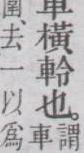 車橫軨也。謂
車
圍、去一以爲